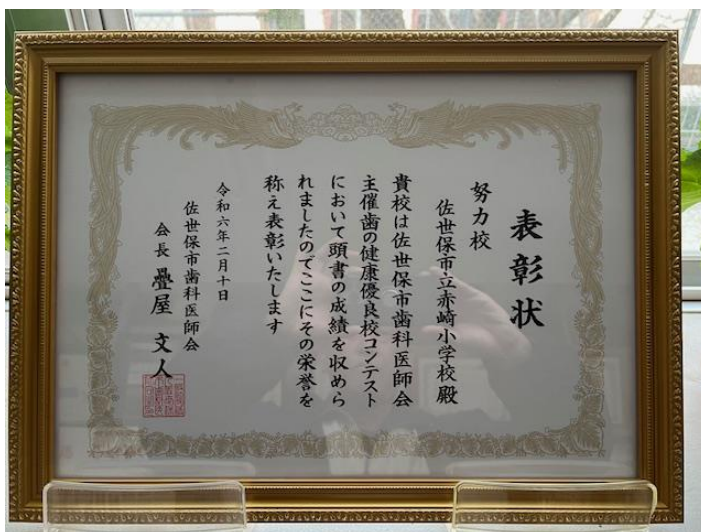 表彰状
努力校
佐世保市立赤崎小学校殿
貴校は佐世保市歯科医師会
主催歯の健康優良校コンテスト
において頭書の成績を収めら
れましたのでここにその栄誉を
称え表彰いたします
令和六年二月十日
佐世保市歯科医師会
会長 疊屋 文人